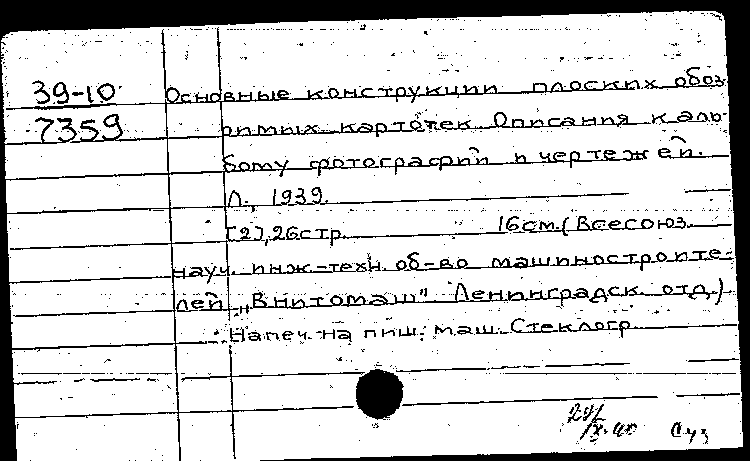 39-10 Основные конструкции плоских обоз-
7359 римых картотек. Описания к аль-
бому фотографий и чертежей.
Л., 1939.
[2], 26 стр. 16 см. (Всесоюз.
науч. инж.-техн. об-во машиностроите-
лей „Внитомаш" Ленинградск. отд.)
Напеч. на пиш. маш. Стеклогр.